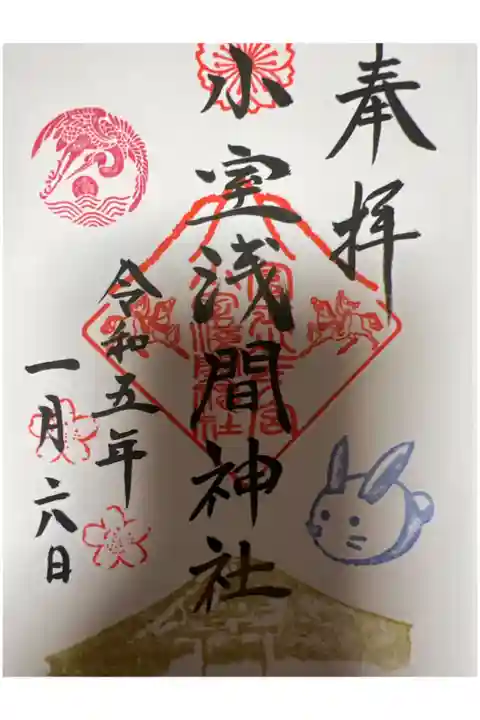 奉拝
小室浅間神社
令和五年
一月六日